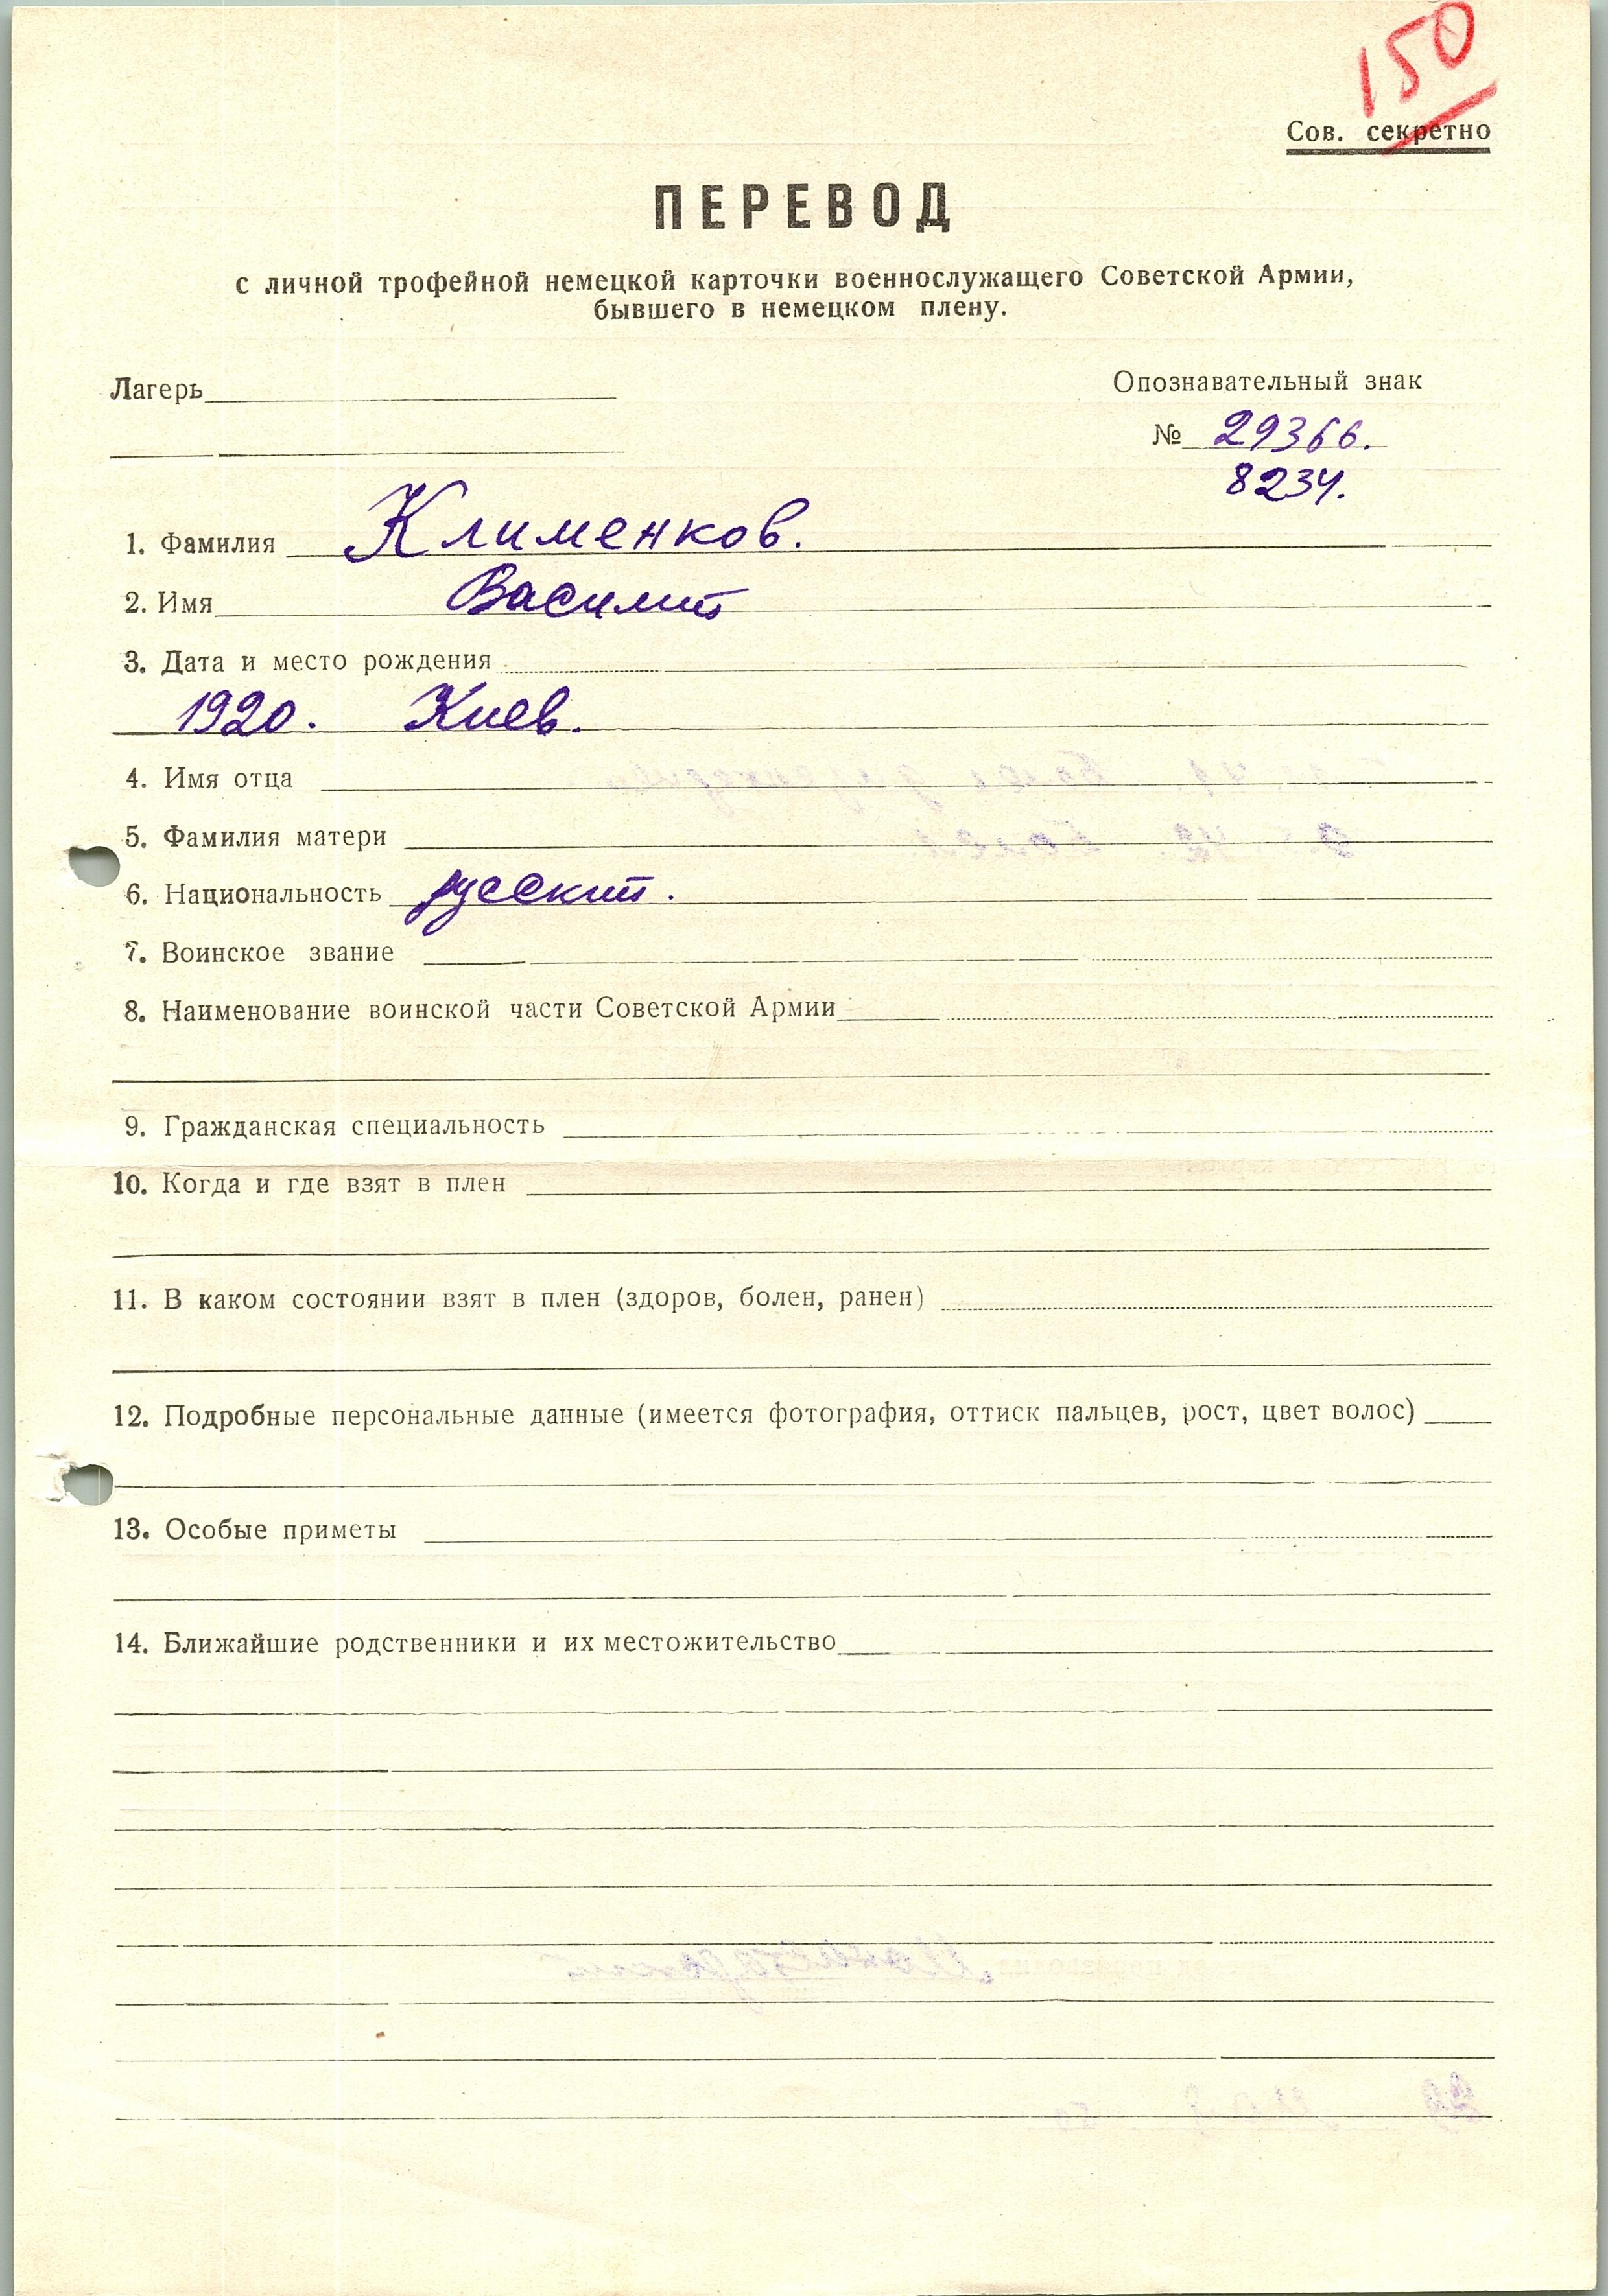 150
Сов. секретно
ПЕРЕВОД
с личной трофейной немецкой карточки военнослужащего Советской Армии,
бывшего в немецком плену.
Лагерь
Опознавательный знак
№ 29366.
8234.
1. Фамилия Клименков.
2. Имя Василий
3. Дата и место рождения
1920. Киев.
4. Имя отца
5. Фамилия матери
6. Национальность русский.
7. Воинское звание
8. Наименование воинской части Советской Армии
9. Гражданская специальность
10. Когда и где взят в плен
11. В каком состоянии взят в плен (здоров, болен, ранен)
12. Подробные персональные данные (имеется фотография, оттиск пальцев, рост, цвет волос)
13. Особые приметы
14. Ближайшие родственники и их местожительство